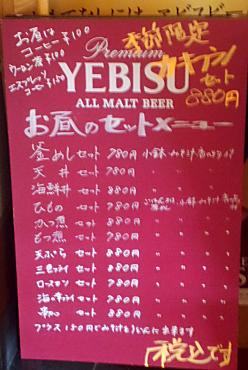 お昼は
コーヒー ¥100
ウーロン茶 ¥100
エスプレッソ ¥150
季節限定
カキフライ
セット
880円
Premium
YEBISU
ALL MALT BEER
お昼のセットメニュー
釜めし セット 780円 小鉢・みそ汁・香のもの付
天丼 セット 780円 〃 〃 〃
海鮮丼 セット 880円 〃 〃 〃
ひもの セット 780円 ごはん 小鉢 みそ汁
かつ煮 セット 880円 〃 〃 〃
もつ煮 セット 780円 〃 〃 〃
天ぷら セット 880円 〃 〃 〃
三色フライ セット 880円 〃 〃 〃
ロースカツ セット 780円 〃 〃 〃
海の幸フライ セット 880円 〃 〃 〃
セット 880円 〃 〃 〃
プラス150円でみそ汁を に出来ます
税込です